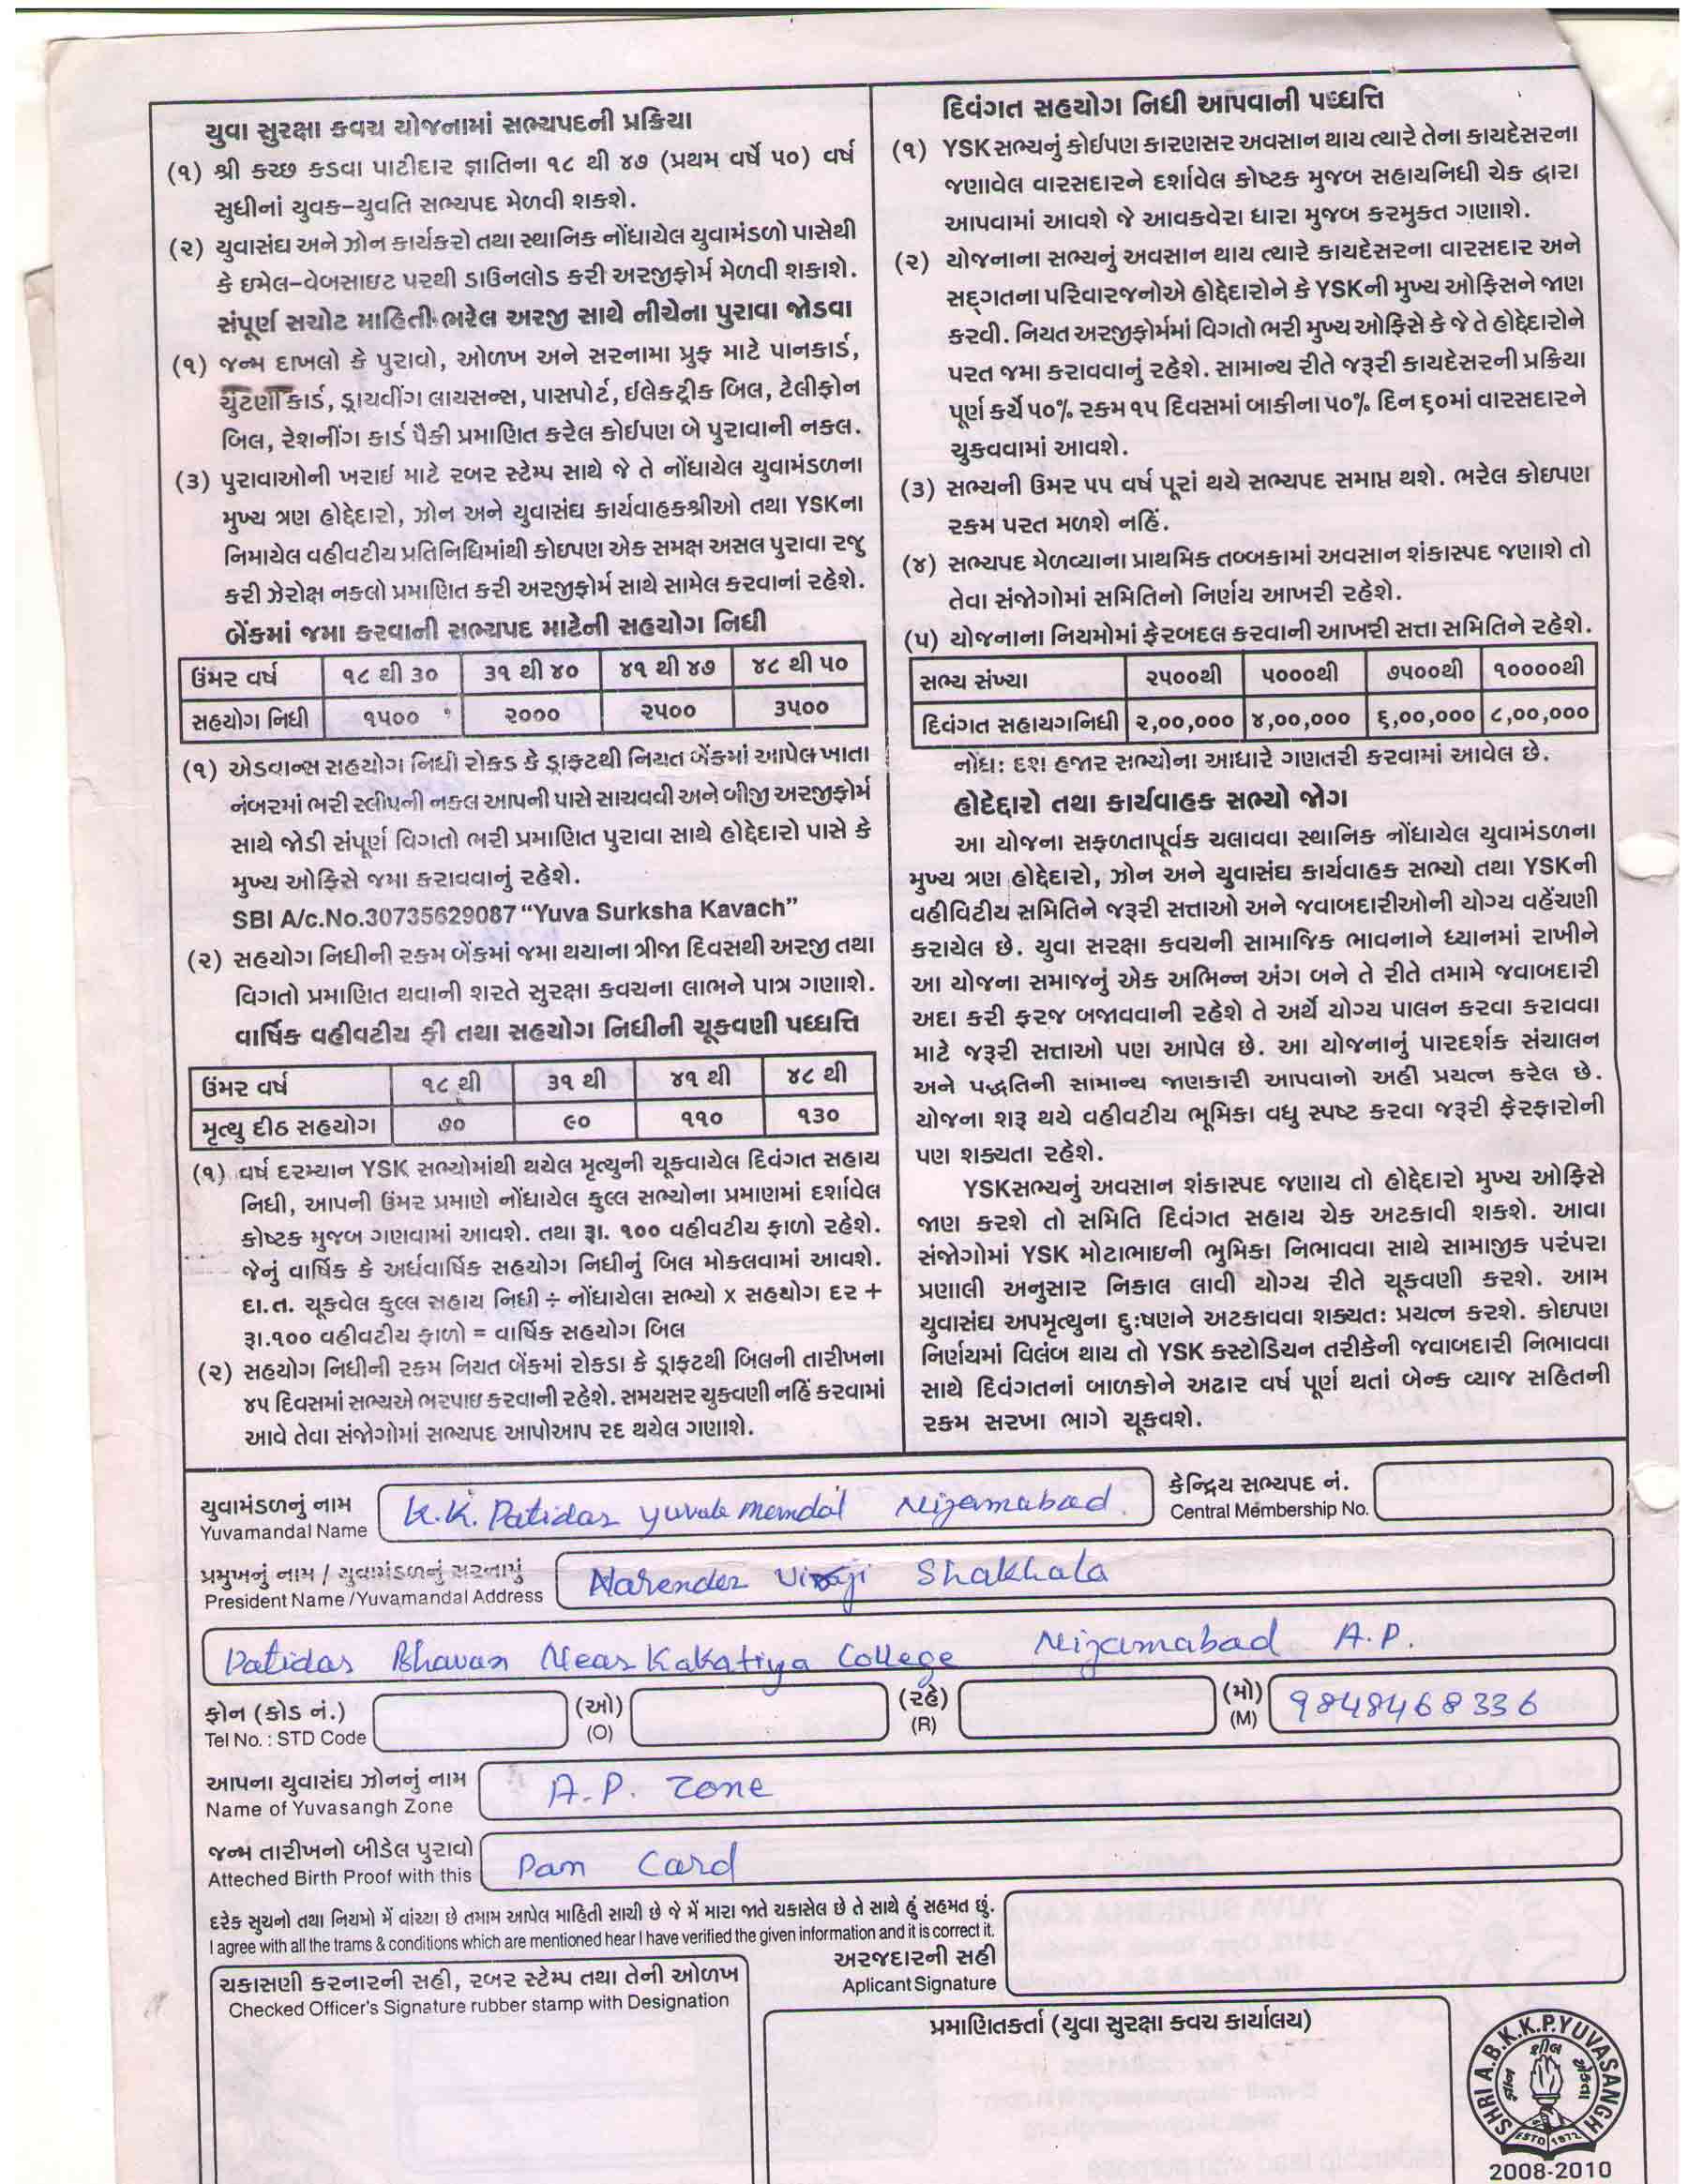 યુવા સુરક્ષા કવચ યોજનામાં સભ્યપદની પ્રક્રિયા
(૧) શ્રી કચ્છ કડવા પાટીદાર જ્ઞાતિના ૧૮ થી ૪૭ (પ્રથમ વર્ષે ૫૦) વર્ષ
સુધીનાં યુવક-યુવતિ સભ્યપદ મેળવી શકશે.
(૨) યુવાસંઘ અને ઝોન કાર્યકરો તથા સ્થાનિક નોંધાયેલ યુવામંડળો પાસેથી
કે ઇમેલ-વેબસાઇટ પરથી ડાઉનલોડ કરી અરજીફોર્મ મેળવી શકાશે.
સંપૂર્ણ સચોટ માહિતી ભરેલ અરજી સાથે નીચેના પુરાવા જોડવા
(૧) જન્મ દાખલો કે પુરાવો, ઓળખ અને સરનામા પ્રુફ માટે પાનકાર્ડ,
ચુંટણી કાર્ડ, ડ્રાયવીંગ લાયસન્સ, પાસપોર્ટ, ઈલેકટ્રીક બિલ, ટેલીફોન
બિલ, રેશનીંગ કાર્ડ પૈકી પ્રમાણિત કરેલ કોઈપણ બે પુરાવાની નકલ.
(૩) પુરાવાઓની ખરાઈ માટે રબર સ્ટેમ્પ સાથે જે તે નોંધાયેલ યુવામંડળના
મુખ્ય ત્રણ હોદ્દેદારો, ઝોન અને યુવાસંઘ કાર્યવાહકશ્રીઓ તથા YSKના
નિમાયેલ વહીવટીય પ્રતિનિધિમાંથી કોઇપણ એક સમક્ષ અસલ પુરાવા રજુ
કરી ઝેરોક્ષ નકલો પ્રમાણિત કરી અરજીફોર્મ સાથે સામેલ કરવાનાં રહેશે.
બેંકમાં જમા કરવાની સભ્યપદ માટેની સહયોગ નિધી
ઉંમર વર્ષ ૧૮ થી ૩૦ ૩૧ થી ૪૦ ૪૧ થી ૪૭ ૪૮ થી ૫૦
સહયોગ નિધી ૧૫૦૦ ૨૦૦૦ ૨૫૦૦ ૩૫૦૦
(૧) એડવાન્સ સહયોગ નિધી રોકડ કે ડ્રાફટથી નિયત બેંકમાં આપેલ ખાતા
નંબરમાં ભરી સ્લીપની નકલ આપની પાસે સાચવવી અને બીજી અરજીફોર્મ
સાથે જોડી સંપૂર્ણ વિગતો ભરી પ્રમાણિત પુરાવા સાથે હોદ્દેદારો પાસે કે
મુખ્ય ઓફિસે જમા કરાવવાનું રહેશે.
SBI A/c.No.30735629087 “Yuva Surksha Kavach”
(૨) સહયોગ નિધીની રકમ બેંકમાં જમા થયાના ત્રીજા દિવસથી અરજી તથા
વિગતો પ્રમાણિત થવાની શરતે સુરક્ષા કવચના લાભને પાત્ર ગણાશે.
વાર્ષિક વહીવટીય ફી તથા સહયોગ નિધીની ચૂકવણી પધ્ધત્તિ
ઉંમર વર્ષ ૧૮ થી ૩૧ થી ૪૧ થી ૪૮ થી
મૃત્યુ દીઠ સહયોગ ૭૦ ૯૦ ૧૧૦ ૧૩૦
(૧) વર્ષ દરમ્યાન YSK સભ્યોમાંથી થયેલ મૃત્યુની ચૂકવાયેલ દિવંગત સહાય
નિધી, આપની ઉંમર પ્રમાણે નોંધાયેલ કુલ્લ સભ્યોના પ્રમાણમાં દર્શાવેલ
કોષ્ટક મુજબ ગણવામાં આવશે. તથા રૂા. ૧૦૦ વહીવટીય ફાળો રહેશે.
જેનું વાર્ષિક કે અર્ધવાર્ષિક સહયોગ નિધીનું બિલ મોકલવામાં આવશે.
દા.ત. ચૂકવેલ કુલ્લ સહાય નિધી ÷ નોંધાયેલા સભ્યો x સહયોગ દર +
રૂા.૧૦૦ વહીવટીય ફાળો = વાર્ષિક સહયોગ બિલ
(૨) સહયોગ નિધીની રકમ નિયત બેંકમાં રોકડા કે ડ્રાફટથી બિલની તારીખના
૪૫ દિવસમાં સભ્યએ ભરપાઇ કરવાની રહેશે. સમયસર ચુકવણી નહિં કરવામાં
આવે તેવા સંજોગોમાં સભ્યપદ આપોઆપ રદ થયેલ ગણાશે.
દિવંગત સહયોગ નિધી આપવાની પધ્ધત્તિ
(૧) YSK સભ્યનું કોઈપણ કારણસર અવસાન થાય ત્યારે તેના કાયદેસરના
જણાવેલ વારસદારને દર્શાવેલ કોષ્ટક મુજબ સહાયનિધી ચેક દ્વારા
આપવામાં આવશે જે આવકવેરા ધારા મુજબ કરમુકત ગણાશે.
(૨) યોજનાના સભ્યનું અવસાન થાય ત્યારે કાયદેસરના વારસદાર અને
સદ્‌ગતના પરિવારજનોએ હોદ્દેદારોને કે YSKની મુખ્ય ઓફિસને જાણ
કરવી. નિયત અરજીફોર્મમાં વિગતો ભરી મુખ્ય ઓફિસે કે જે તે હોદ્દેદારોને
પરત જમા કરાવવાનું રહેશે. સામાન્ય રીતે જરૂરી કાયદેસરની પ્રક્રિયા
પૂર્ણ કર્યે ૫૦% રકમ ૧૫ દિવસમાં બાકીના ૫૦% દિન ૬૦માં વારસદારને
ચુકવવામાં આવશે.
(૩) સભ્યની ઉમર ૫૫ વર્ષ પૂરાં થયે સભ્યપદ સમાપ્ત થશે. ભરેલ કોઇપણ
રકમ પરત મળશે નહિં.
(૪) સભ્યપદ મેળવ્યાના પ્રાથમિક તબ્બકામાં અવસાન શંકાસ્પદ જણાશે તો
તેવા સંજોગોમાં સમિતિનો નિર્ણય આખરી રહેશે.
(૫) યોજનાના નિયમોમાં ફેરબદલ કરવાની આખરી સત્તા સમિતિને રહેશે.
સભ્ય સંખ્યા ૨૫૦૦થી ૫૦૦૦થી ૭૫૦૦થી ૧૦૦૦૦થી
દિવંગત સહાયગનિધી ૨,૦૦,૦૦૦ ૪,૦૦,૦૦૦ ૬,૦૦,૦૦૦ ૮,૦૦,૦૦૦
નોંધ: દશ હજાર સભ્યોના આધારે ગણતરી કરવામાં આવેલ છે.
હોદેદ્દારો તથા કાર્યવાહક સભ્યો જોગ
આ યોજના સફળતાપૂર્વક ચલાવવા સ્થાનિક નોંધાયેલ યુવામંડળના
મુખ્ય ત્રણ હોદ્દેદારો, ઝોન અને યુવાસંઘ કાર્યવાહક સભ્યો તથા YSKની
વહીવિટીય સમિતિને જરૂરી સત્તાઓ અને જવાબદારીઓની યોગ્ય વહેંચણી
કરાયેલ છે. યુવા સરક્ષા કવચની સામાજિક ભાવનાને ધ્યાનમાં રાખીને
આ યોજના સમાજનું એક અભિન્ન અંગ બને તે રીતે તમામે જવાબદારી
અદા કરી ફરજ બજાવવાની રહેશે તે અર્થે યોગ્ય પાલન કરવા કરાવવા
માટે જરૂરી સત્તાઓ પણ આપેલ છે. આ યોજનાનું પારદર્શક સંચાલન
અને પદ્ધતિની સામાન્ય જાણકારી આપવાનો અહીં પ્રયત્ન કરેલ છે.
યોજના શરૂ થયે વહીવટીય ભૂમિકા વધુ સ્પષ્ટ કરવા જરૂરી ફેરફારોની
પણ શક્યતા રહેશે.
YSKસભ્યનું અવસાન શંકાસ્પદ જણાય તો હોદ્દેદારો મુખ્ય ઓફિસે
જાણ કરશે તો સમિતિ દિવંગત સહાય ચેક અટકાવી શકશે. આવા
સંજોગોમાં YSK મોટાભાઇની ભુમિકા નિભાવવા સાથે સામાજીક પરંપરા
પ્રણાલી અનુસાર નિકાલ લાવી યોગ્ય રીતે ચૂકવણી કરશે. આમ
યુવાસંઘ અપમૃત્યુના દુ:ષણને અટકાવવા શક્યત: પ્રયત્ન કરશે. કોઇપણ
નિર્ણયમાં વિલંબ થાય તો YSK કસ્ટોડિયન તરીકેની જવાબદારી નિભાવવા
સાથે દિવંગતનાં બાળકોને અઢાર વર્ષ પૂર્ણ થતાં બેન્ક વ્યાજ સહિતની
રકમ સરખા ભાગે ચૂકવશે.
યુવામંડળનું નામ K.K. Patidar yuvak mandal Nizamabad. કેન્દ્રિય સભ્યપદ નં.
Yuvamandal Name Central Membership No.
પ્રમુખનું નામ / યુવામંડળનું સરનામું Narender Viraji Shakhala
President Name /Yuvamandal Address
Patidar Bhavan Near Kakatiya College Nizamabad A.P.
ફોન (કોડ નં.) (ઓ) (રહે) (મો) 9848468336
Tel No. : STD Code (O) (R) (M)
આપના યુવાસંઘ ઝોનનું નામ A.P. zone
Name of Yuvasangh Zone
જન્મ તારીખનો બીડેલ પુરાવો Pan Card
Atteched Birth Proof with this
દરેક સુચનો તથા નિયમો મેં વાંચ્યા છે તમામ આપેલ માહિતી સાચી છે જે મેં મારા જાતે ચકાસેલ છે તે સાથે હું સહમત છું.
I agree with all the trams & conditions which are mentioned hear I have verified the given information and it is correct it.
અરજદારની સહી
Aplicant Signature
ચકાસણી કરનારની સહી, રબર સ્ટેમ્પ તથા તેની ઓળખ
Checked Officer's Signature rubber stamp with Designation
પ્રમાણિતકર્તા (યુવા સુરક્ષા કવચ કાર્યાલય)
SHRI A.B.K.K.P.YUVASANGH
શીલ
જ્ઞાન
એકતા
ESTD 1972
2008-2010